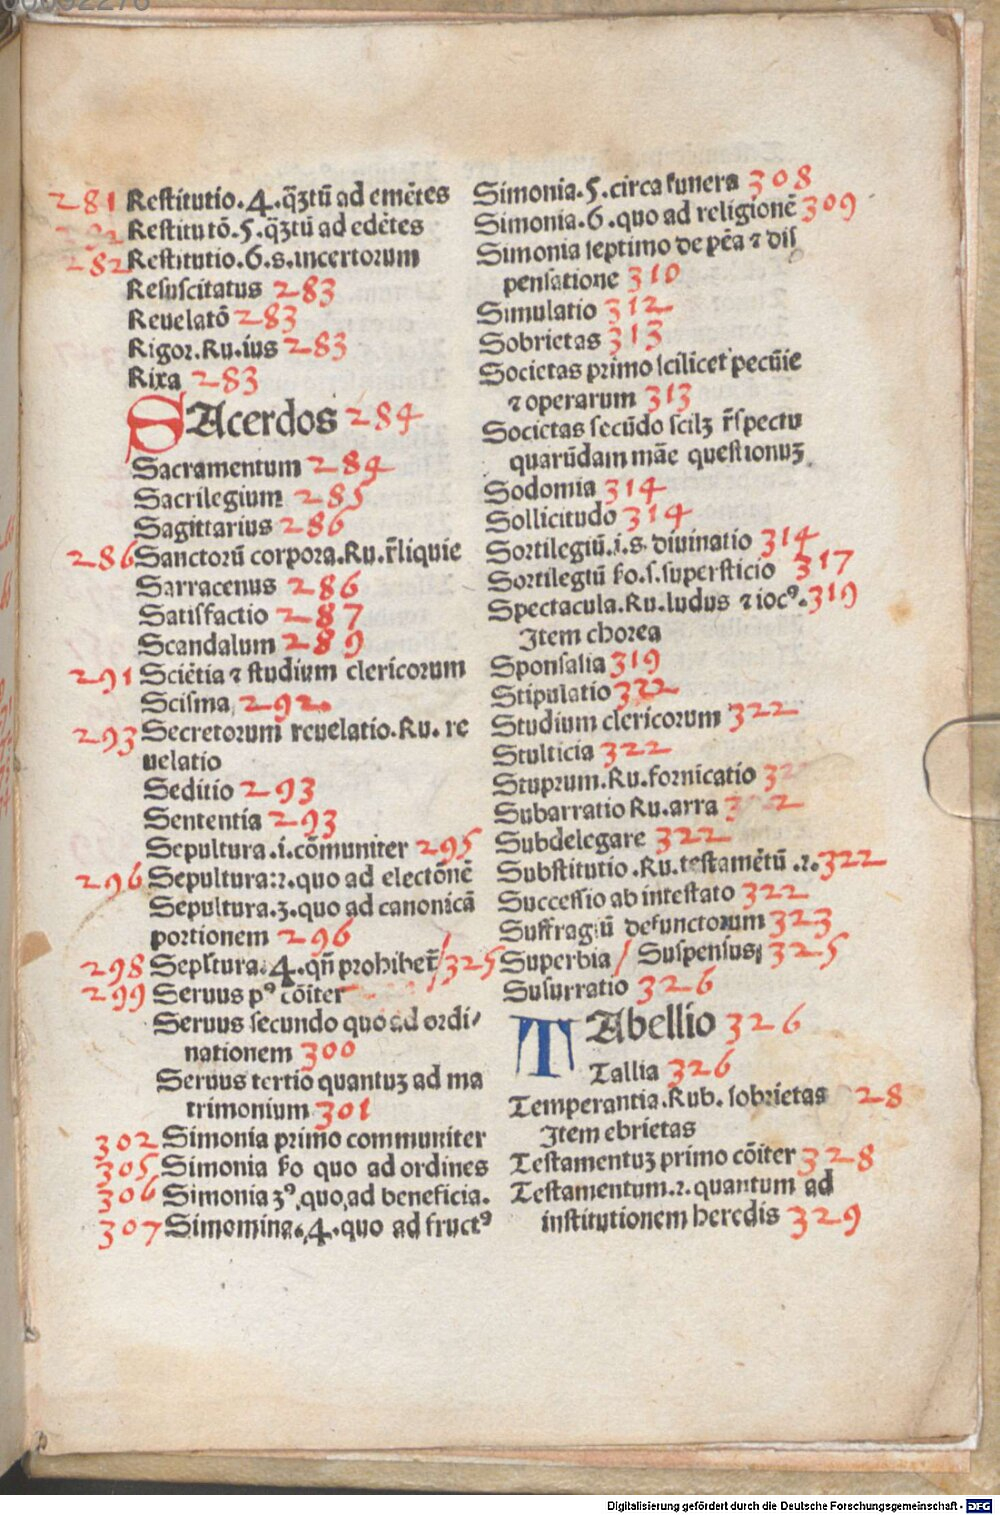 281 Restitutio.4.q̃ʒtũ ad emẽtes
Restitutõ.5.q̃ʒtũ ad edẽtes
282 Restitutio.6.s.incertorum
Resuscitatus 283
Reuelatõ 283
Rigor.Ru.ius 283
Rixa 283
SAcerdos 284
Sacramentum 284
Sacrilegium 285
Sagittarius 286
286 Sanctorũ corpora.Ru.r̃liquie
Sarracenus 286
Satisfactio 287
Scandalum 289
291 Sciẽtia ⁊ studium clericorum
Scisma 292
293 Secretorum reuelatio.Ru. re
uelatio
Seditio 293
Sententia 293
Sepultura.i.cõmuniter 295
296 Sepultura:2.quo ad electõnẽ
Sepultura.3.quo ad canonicã
portionem 296
298 Sepl̃tura.4.qñ prohibet̃ / 325
299 Seruus pꝰ cõiter
Seruus secundo quo ad ordi/
nationem 300
Seruus tertio quantuʒ ad ma
trimonium 301
302 Simonia primo communiter
305 Simonia ẜo quo ad ordines
306 Simonia 3ꝰ quo ad beneficia.
307 Simomina.4.quo ad fructꝰ
Simonia.5.circa funera 308
Simonia.6.quo ad religionẽ 309
Simonia septimo de pẽa ⁊ dis
pensatione 310
Simulatio 312
Sobrietas 313
Societas primo scilicet pecũie
⁊ operarum 313
Societas secũdo scilʒ r̃spectu
quarũdam mãe questionuʒ
Sodomia 314
Sollicitudo 314
Sortilegiũ.i.s.diuinatio 314
Sortilegiũ ẜo.s.supersticio 317
Spectacula.Ru.ludus ⁊ iocꝰ. 319
Item chorea
Sponsalia 319
Stipulatio 322
Studium clericorum 322
Stulticia 322
Stuprum.Ru.fornicatio 322
Subarratio Ru.arra 322
Subdelegare 322
Substitutio.Ru.testamẽtũ.2. 322
Successio ab intestato 322
Suffragiũ defunctorum 323
Superbia / Suspensus 325
Susurratio 326
TAbellio 326
Tallia 326
Temperantia.Rub.sobrietas 28
Item ebrietas
Testamentuʒ primo cõiter 328
Testamentum.2.quantum ad
institutionem heredis 329
Digitalisierung gefördert durch die Deutsche Forschungsgemeinschaft - DFG